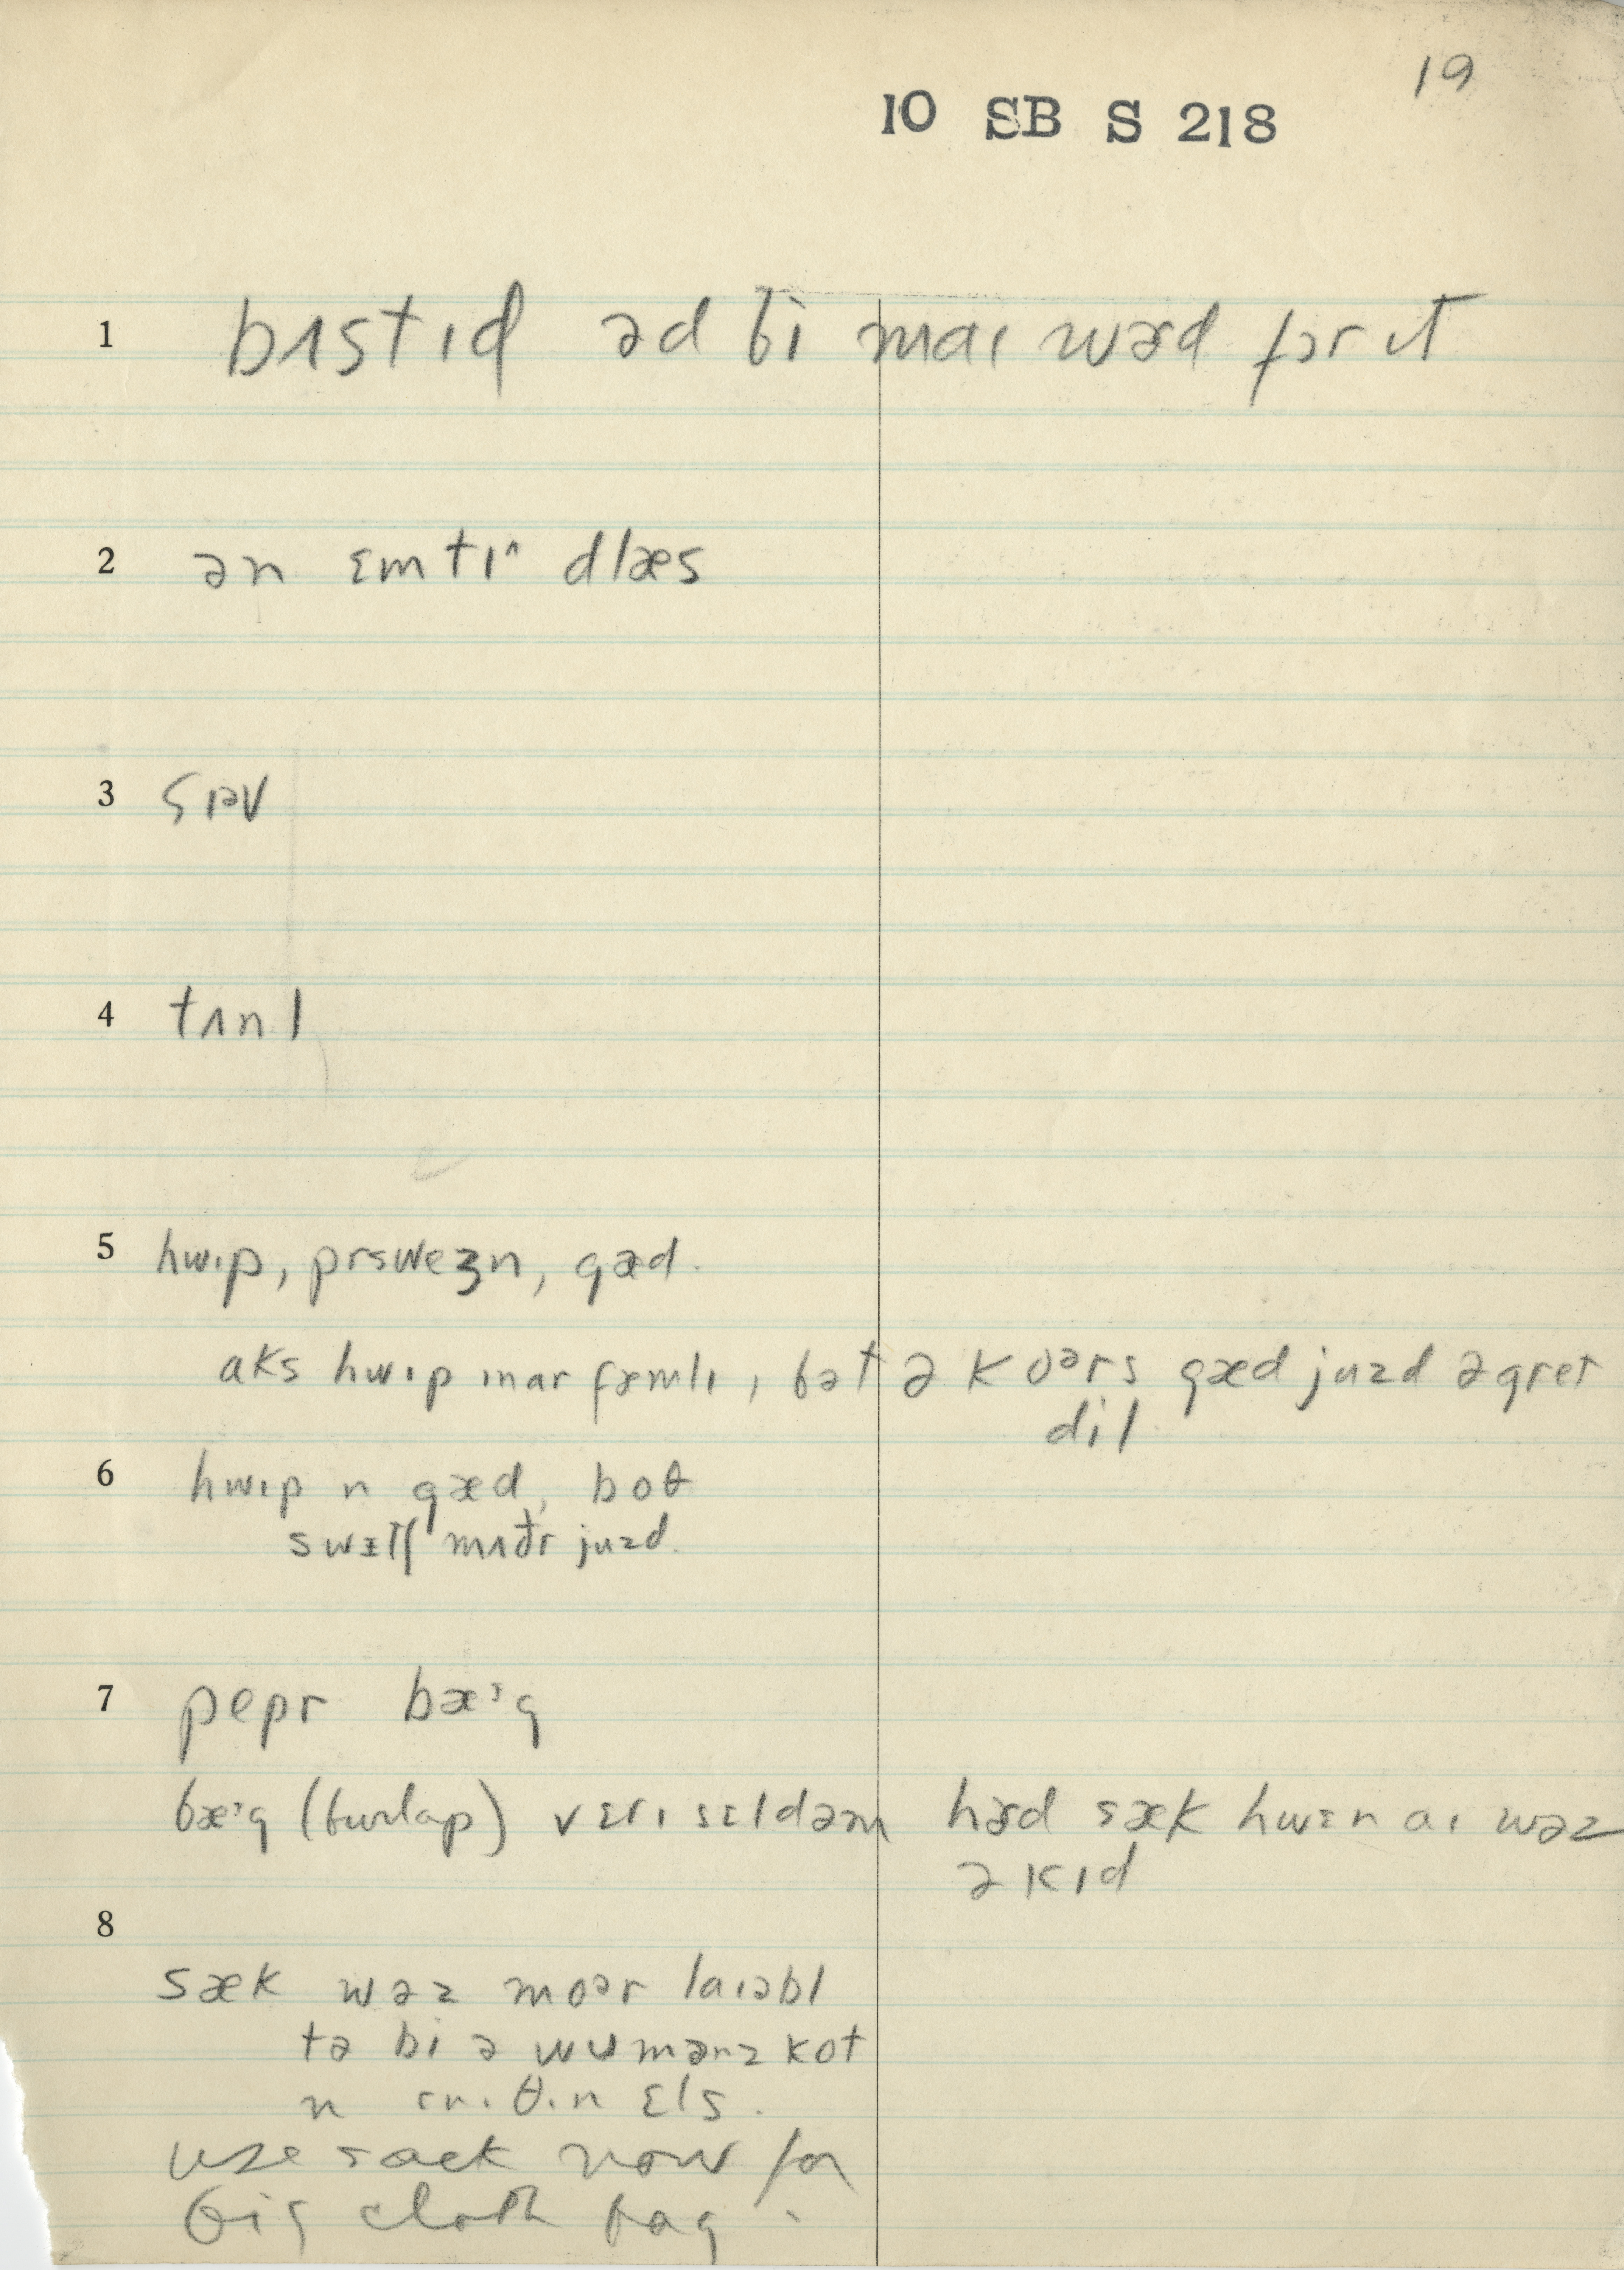 19
10 SB S 218
1 bʌstɪd əd bi maɪ wɚd fɔr ɪt
2 ən ɛmtɪ^ dlæs
3 sɪəv
4 tʌnl
5 hwɪp, prswezn, gæd.
aks hwɪp ɪnar fæmlɪ, bət ə koərs gæd juzd ə gret
dil
6 hwɪp n gæd, boθ
swɪtʃ mʌðr juzd.
7 pepr bæᶾg
bæᶾg (burlap) vɛrɪ sɛldəm hɚd sæk hwɛn aɪ wəz
ə kɪd
8
sæk wəz moər laɪəbl
tə bi ə wumənz kot
n ɛnɪθɪn ɛls.
use sack now for
big cloth bag.